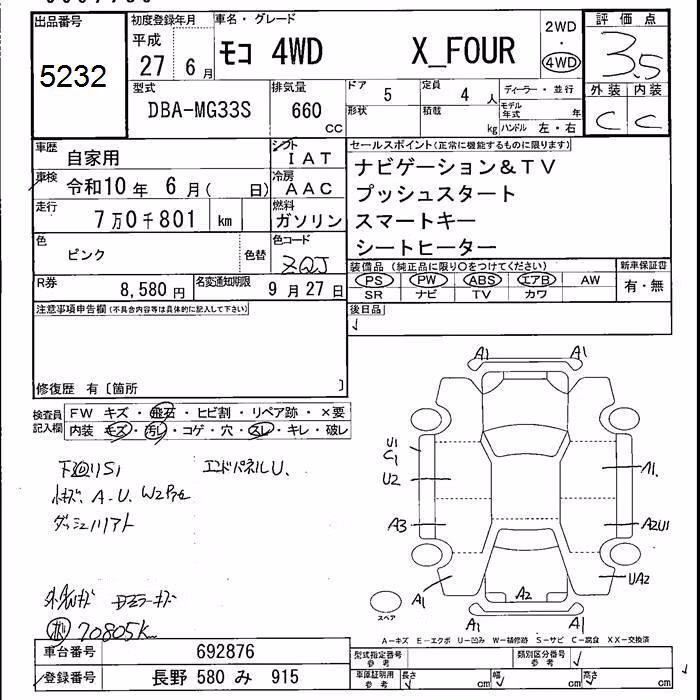 出品番号 初度登録年月 車名・グレード 2WD 評価点
5232 平成 27 6月 モコ 4WD X_FOUR ・ 4WD 3.5
型式 排気量 ドア 5 定員 4 人 ディーラー・並行 外装 内装
DBA-MG33S 660 CC 形状 積載 kg モデル年式 年 C C
ハンドル 左・右
車歴 自家用 シフト IAT セールスポイント(正常に機能するものに限ります)
車検 令和10年 6月( 日) 冷房 AAC ナビゲーション&TV
走行 7万0千801 km 燃料 ガソリン プッシュスタート
スマートキー
色 ピンク 色替 色コード ZQJ シートヒーター
装備品(純正品に限り○をつけてください) 新車保証書
R券 8,580円 名変通知期限 9月27日 PS PW ABS エアB AW 有・無
SR ナビ TV カワ
注意事項申告欄(不具合内容等は具体的に記入して下さい) 後日品
修復歴 有〔箇所 〕
検査員 FW キズ・飛石・ヒビ割・リペア跡・×要
記入欄 内装 キズ・汚レ・コゲ・穴・スレ・キレ・破レ
下廻りS1 エンドパネルU.
A-U. W2P
A1 A1
U1
C1
U2 A1.
A3 A2U1
A1 A2 UA2
スペア A1 A1
70805K
A―キズ E―エクボ U―凹み W―補修跡 S―サビ C―腐食 XX―交換済
車台番号 692876 型式指定番号 参考 類別区分番号 参考
登録番号 長野 580 み 915 車庫証明用 参考 長さ cm 幅 cm 高さ cm